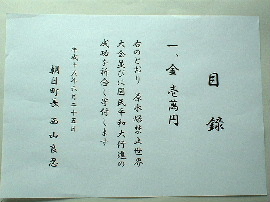 目録
一、金壱萬円
右のとおり 原水爆禁止世界
大会並びに国民平和大行進の
成功を祈念し寄付します
平成十六年六月二十五日
朝日町長 西山良忍